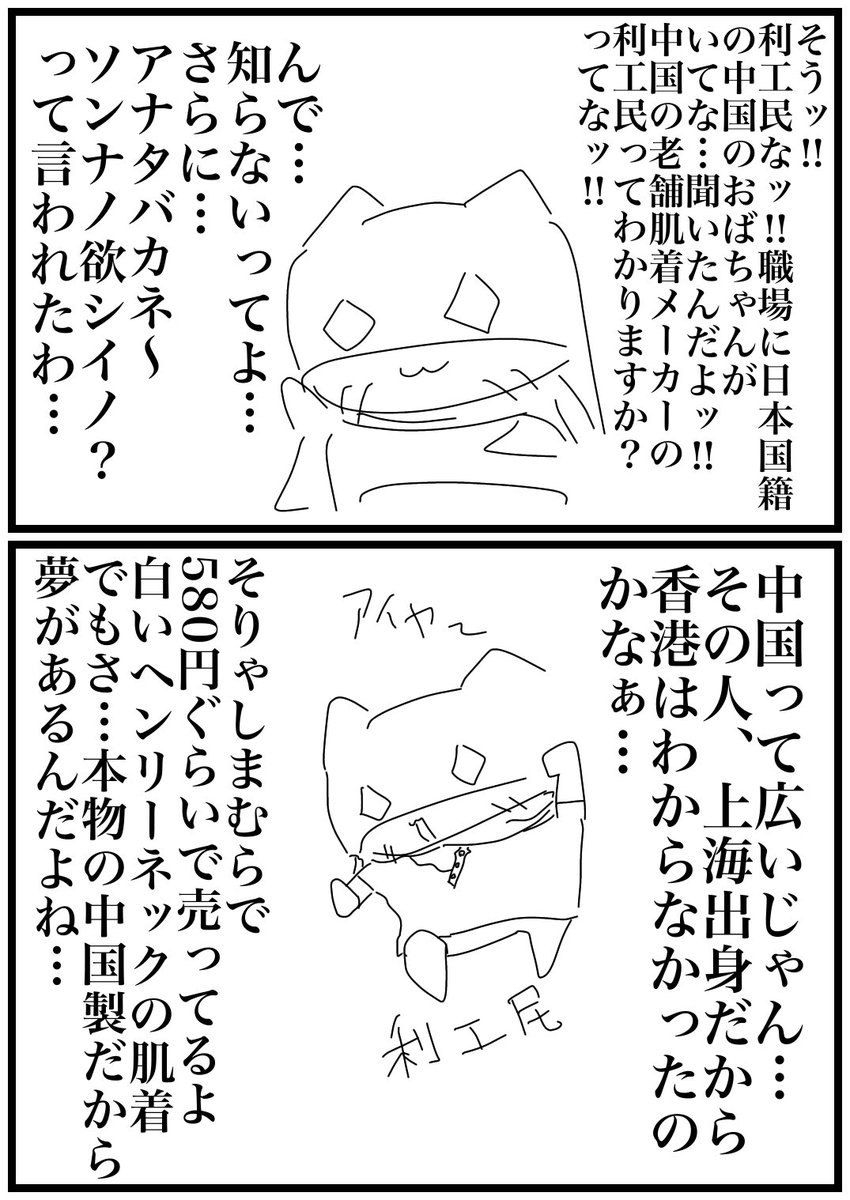 そうッ!!
利工民なッ!!職場に日本国籍
の中国のおばちゃんが
いてな…聞いたんだよッ!!
中国の老舗肌着メーカーの
利工民ってわかりますか?
ってなッ!!
んで…
知らないってよ…
さらに…
アナタバカネ〜
ソンナノ欲シイノ?
って言われたわ…
中国って広いじゃん…
その人、上海出身だから
香港はわからなかったの
かなぁ…
アイヤー
利工民
そりゃしまむらで
580円ぐらいで売ってるよ
白いヘンリーネックの肌着
でもさ…本物の中国製だから
夢があるんだよね…